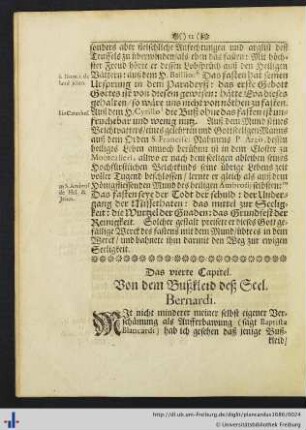 )( 12 )(
sonders aber fleischliche Anfechtungen und arglist deß
Teuffels zu überwinden als eben das fasten: Mit höch-
ster Freud hörte er dessen Lobspruch auß den Heiligen
Vättern: auß dem H. Basilio: Das fasten hat seinen
Ursprung in dem Paradeyß: das erste Gebott
Gottes ist von diesem gewesen: hätte Eva dieses
gehalten / so wäre uns nicht von nöthen zu fasten.
Auß dem H. Cyrillo: die Buß ohne das fasten ist un-
fruchtbar und wenig nutz. Auß dem Mund seines
Beichtvatters / eines gelehrten und Gottseeligen Manns
auß dem Orden S. Francisci
seeliges Leben annoch berühmt ist in dem Closter zu
Moncalieri, allwo er nach dem seeligen ableiben seines
Hochfürstlichen Beichtkinds eine übrige Lebens zeit
voller Tugend beschlossen / lernte er gleich als auß dem
Hönigfliessenden Mund des heiligen Ambrosii
Das fasten seye der Todt der schuld: der Unter-
gang der Missethaten: das mittel zur Seelig-
keit: die Wurtzel der Gnaden: das Grundfest der
Reinigkeit. Solcher gestalt preiset er dieses Gott ge-
fällige Werck des fastens mit dem Mund / übte es in dem
Werck / und bahnete ihm darmit den Weg zur ewigen
Seeligkeit.
Das vierte Capitel.
Von dem Bußkleid deß Seel.
Bernardi.
MIt nicht minderer meiner selbst eigener Ver-
schämung als Aufferbawung (sagt Baptista
Blancardi) hab ich gesehen daß jenige Buß-
kleid /
http://dl.ub.uni-freiburg.de/diglit/blancardus1686/0024
© Universitätsbibliothek Freiburg